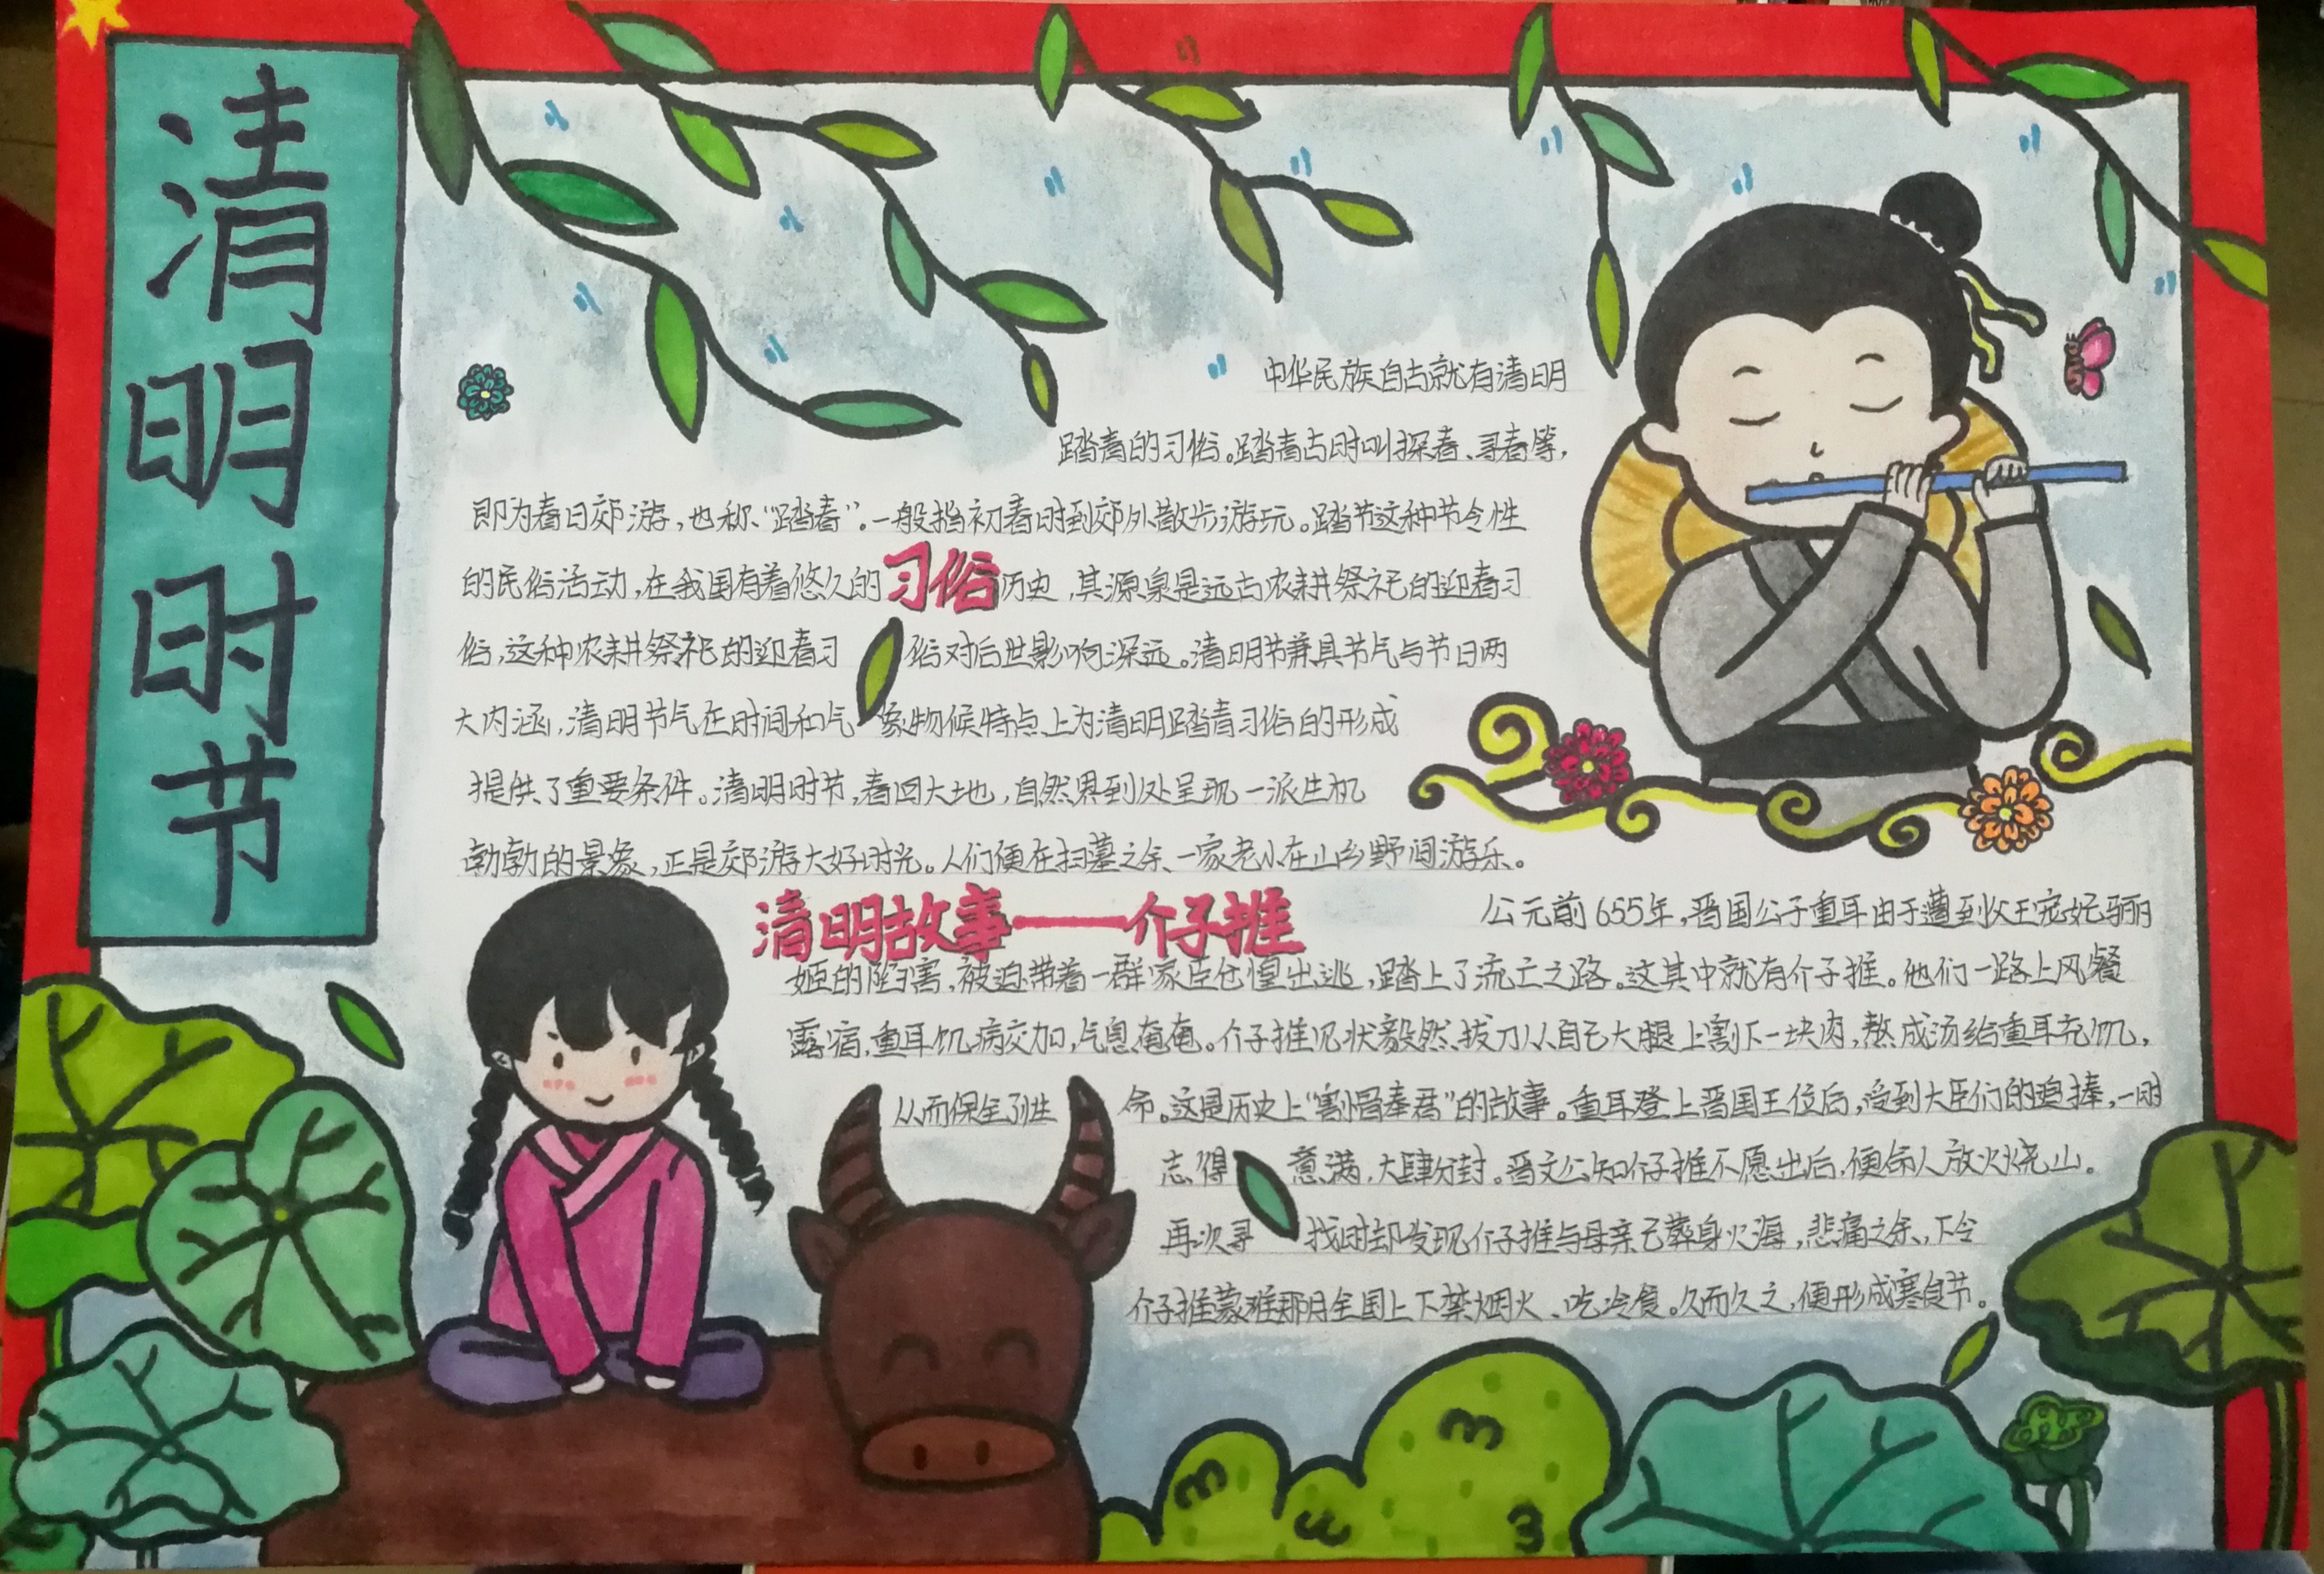 清明时节
中华民族自古就有清明
踏青的习俗。踏青古时叫探春、寻春等,
即为春日郊游,也称“踏春”。一般指初春时到郊外散步游玩。踏节这种节令性
的民俗活动,在我国有着悠久的历史,其源泉是远古农耕祭祀的迎春习
习俗
俗,这种农耕祭祀的迎春习俗对后世影响深远。清明节兼具节气与节日两
大内涵,清明节气在时间和气象物候特点上为清明踏青习俗的形成
提供了重要条件。清明时节,春回大地,自然界到处呈现一派生机
勃勃的景象,正是郊游大好时光。人们便在扫墓之余、一家老小在山乡野间游乐。
清明故事——介子推
公元前655年,晋国公子重耳由于遭到父王宠妃骊
姬的陷害,被迫带着一群家臣仓惶出逃,踏上了流亡之路。这其中就有介子推。他们一路上风餐
露宿,重耳饥病交加,气息奄奄。介子推见状毅然拔刀从自己大腿上割下一块肉,熬成汤给重耳充饥,
从而保全了性命。这是历史上“割骨奉君”的故事。重耳登上晋国王位后,受到大臣们的追捧,一时
志得意满,大肆分封。晋文公知介子推不愿出后,便命人放火烧山。
再次寻找时却发现介子推与母亲已葬身火海,悲痛之余,下令
介子推蒙难那月全国上下禁烟火、吃冷食。久而久之,便形成寒食节。